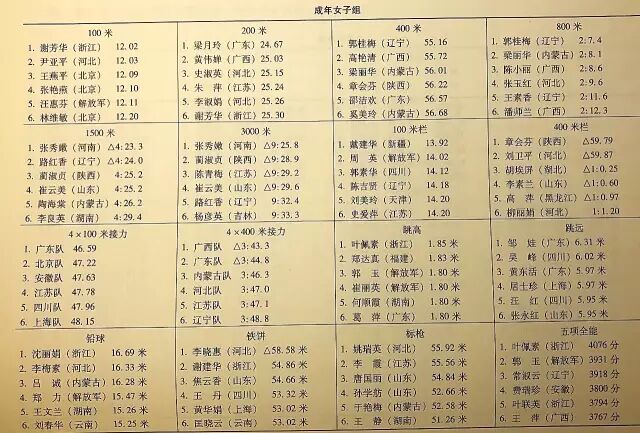 成年女子组
100 米
1. 谢芳华（浙江） 12.02
2. 尹亚平（河北） 12.03
3. 王燕平（北京） 12.09
4. 张艳燕（北京） 12.10
5. 汪惠芬（解放军） 12.11
6. 林维敏（北京） 12.20
200 米
1. 梁月玲（广东） 24.67
2. 黄伟婵（广西） 25.03
3. 史淑英（河北） 25.15
4. 朱 萍（江苏） 25.24
5. 李淑娟（河北） 25.26
6. 谢芳华（浙江） 25.30
400 米
1. 郭桂梅（辽宁） 55.16
2. 高艳清（广西） 55.72
3. 梁丽华（内蒙古） 56.01
4. 章会芬（陕西） 56.22
5. 邵洁欢（广东） 56.57
6. 奚美玲（内蒙古） 56.68
800 米
1. 郭桂梅（辽宁） 2:7.4
2. 梁丽华（内蒙古） 2:8.1
3. 陈小丽（广西） 2:8.6
4. 张玉红（河北） 2:9.6
5. 王素香（辽宁） 2:11.6
6. 潘师兰（广西） 2:12.3
1500 米
1. 张秀嫩（河南） △4:23.3
2. 路红香（辽宁） △4:24.0
3. 蔺淑贞（陕西） 4:25.2
4. 崔云美（山东） 4:25.2
5. 陶海棠（内蒙古） 4:26.2
6. 李良英（湖南） 4:29.4
3000 米
1. 张秀嫩（河南） △9:25.8
2. 蔺淑贞（陕西） △9:28.9
3. 陈青梅（江苏） △9:29.2
4. 崔云美（山东） △9:29.6
5. 路红香（辽宁） 9:32.4
6. 杨彦英（吉林） 9:33.3
100 米栏
1. 戴建华（新疆） 13.92
2. 周 英（解放军） 14.02
3. 郭素华（四川） 14.12
4. 陈吉贤（辽宁） 14.18
5. 刘美玲（天津） 14.20
6. 史爱萍（江苏） 14.20
400 米栏
1. 章会芬（陕西） △59.79
2. 刘卫平（河北） △59.87
3. 胡埃屏（湖南） △1:0.57
4. 李素兰（山东） △1:0.60
5. 高 萍（黑龙江） △1:0.97
6. 柳丽娟（河北） 1:1.20
4×100 米接力
1. 广东队 46.59
2. 北京队 47.22
3. 安徽队 47.63
4. 江苏队 47.78
5. 四川队 47.96
6. 上海队 48.15
4×400 米接力
1. 广西队 △3:43.3
2. 广东队 △3:44.7
3. 内蒙古队 3:46.3
4. 河北队 3:47.0
5. 江苏队 3:47.1
6. 辽宁队 3:48.8
跳高
1. 叶佩素（浙江） 1.85 米
2. 郑达真（福建） 1.83 米
3. 郭 玉（解放军） 1.80 米
4. 崔丽英（解放军） 1.80 米
5. 何顺霞（湖南） 1.80 米
6. 葛 萍（广东） 1.80 米
跳远
1. 邹 娃（广东） 6.31 米
2. 吴 峰（四川） 6.02 米
3. 黄东活（广东） 5.97 米
4. 居士珍（上海） 5.97 米
5. 汪 红（四川） 5.95 米
6. 张永红（山东） 5.95 米
铅球
1. 沈丽娟（浙江） 16.69 米
2. 李梅素（河北） 16.33 米
3. 吕 诚（内蒙古） 16.28 米
4. 郑 力（解放军） 15.47 米
5. 王文兰（湖南） 15.26 米
6. 刘春华（云南） 15.25 米
铁饼
1. 李晓惠（河北） △58.58 米
2. 谢建华（浙江） 54.86 米
3. 焦云香（山东） 54.66 米
4. 王 丹（四川） 53.32 米
5. 黄华娟（上海） 53.02 米
6. 匡晓云（云南） 53.02 米
标枪
1. 姚瑞英（河北） 55.92 米
2. 李 霞（江苏） 55.56 米
3. 唐国丽（山东） 54.84 米
4. 孙学舫（山东） 52.66 米
5. 于艳梅（内蒙古） 52.58 米
6. 王 静（湖南） 51.26 米
五项全能
1. 叶佩素（浙江） 4076 分
2. 郭 玉（解放军） 3931 分
3. 常淑云（辽宁） 3918 分
4. 费瑞珍（安徽） 3800 分
5. 叶联英（浙江） 3794 分
6. 王 萍（广西） 3767 分